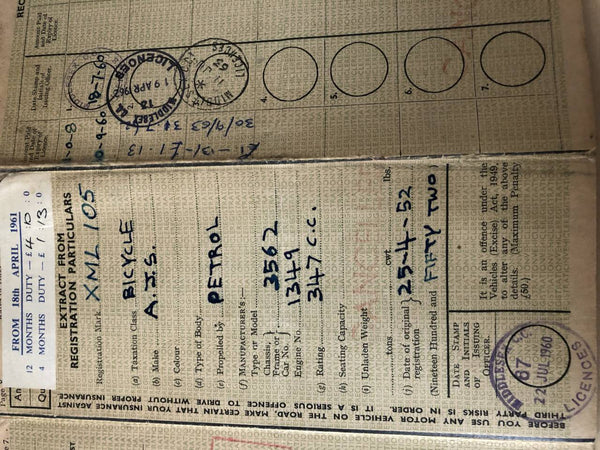 FROM 18th APRIL 1961
12 MONTHS DUTY — £4 : 10 : 0
4 MONTHS DUTY — £1 : 13 : 0
EXTRACT FROM
REGISTRATION PARTICULARS
Registration Mark XML 105
(a) Taxation Class BICYCLE
(b) Make A.J.S.
(c) Colour
(d) Type of Body
(e) Propelled by PETROL
(f) MANUFACTURER'S:—
Type or Model
Chassis,
Frame or
Car No. 3562
Engine No. 1349
(g) Rating 347 C.C.
(h) Seating Capacity
(i) Unladen Weight
tons cwt. lbs.
(j) Date of original
registration 25-4-52
(Nineteen Hundred and FIFTY TWO
DATE STAMP
AND INITIALS
OF ISSUING
OFFICER.
It is an offence under the
Vehicles (Excise) Act, 1949,
to alter any of the above
details. (Maximum Penalty
£50)
MIDDLESEX
87
22 JUL 1960
LICENCES
BEFORE YOU USE ANY MOTOR VEHICLE ON THE ROAD, MAKE CERTAIN THAT YOUR INSURANCE AGAINST
THIRD PARTY RISKS IS IN ORDER. IT IS A SERIOUS OFFENCE TO DRIVE WITHOUT PROPER INSURANCE
18-7-60
30/9/63
LICENCES
19 APR 196
MIDDLESEX
4.
5.
6.
7.